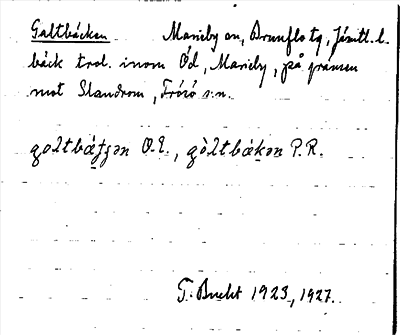 Galtbäcken Marieby sn, Brunflo tg, Jämtl. l.
bäck trol. inom Öd, Marieby, på gränsen
mot Slandrom, Frösö sn.
O.E., P.R.
T. Bucht 1923, 1927.